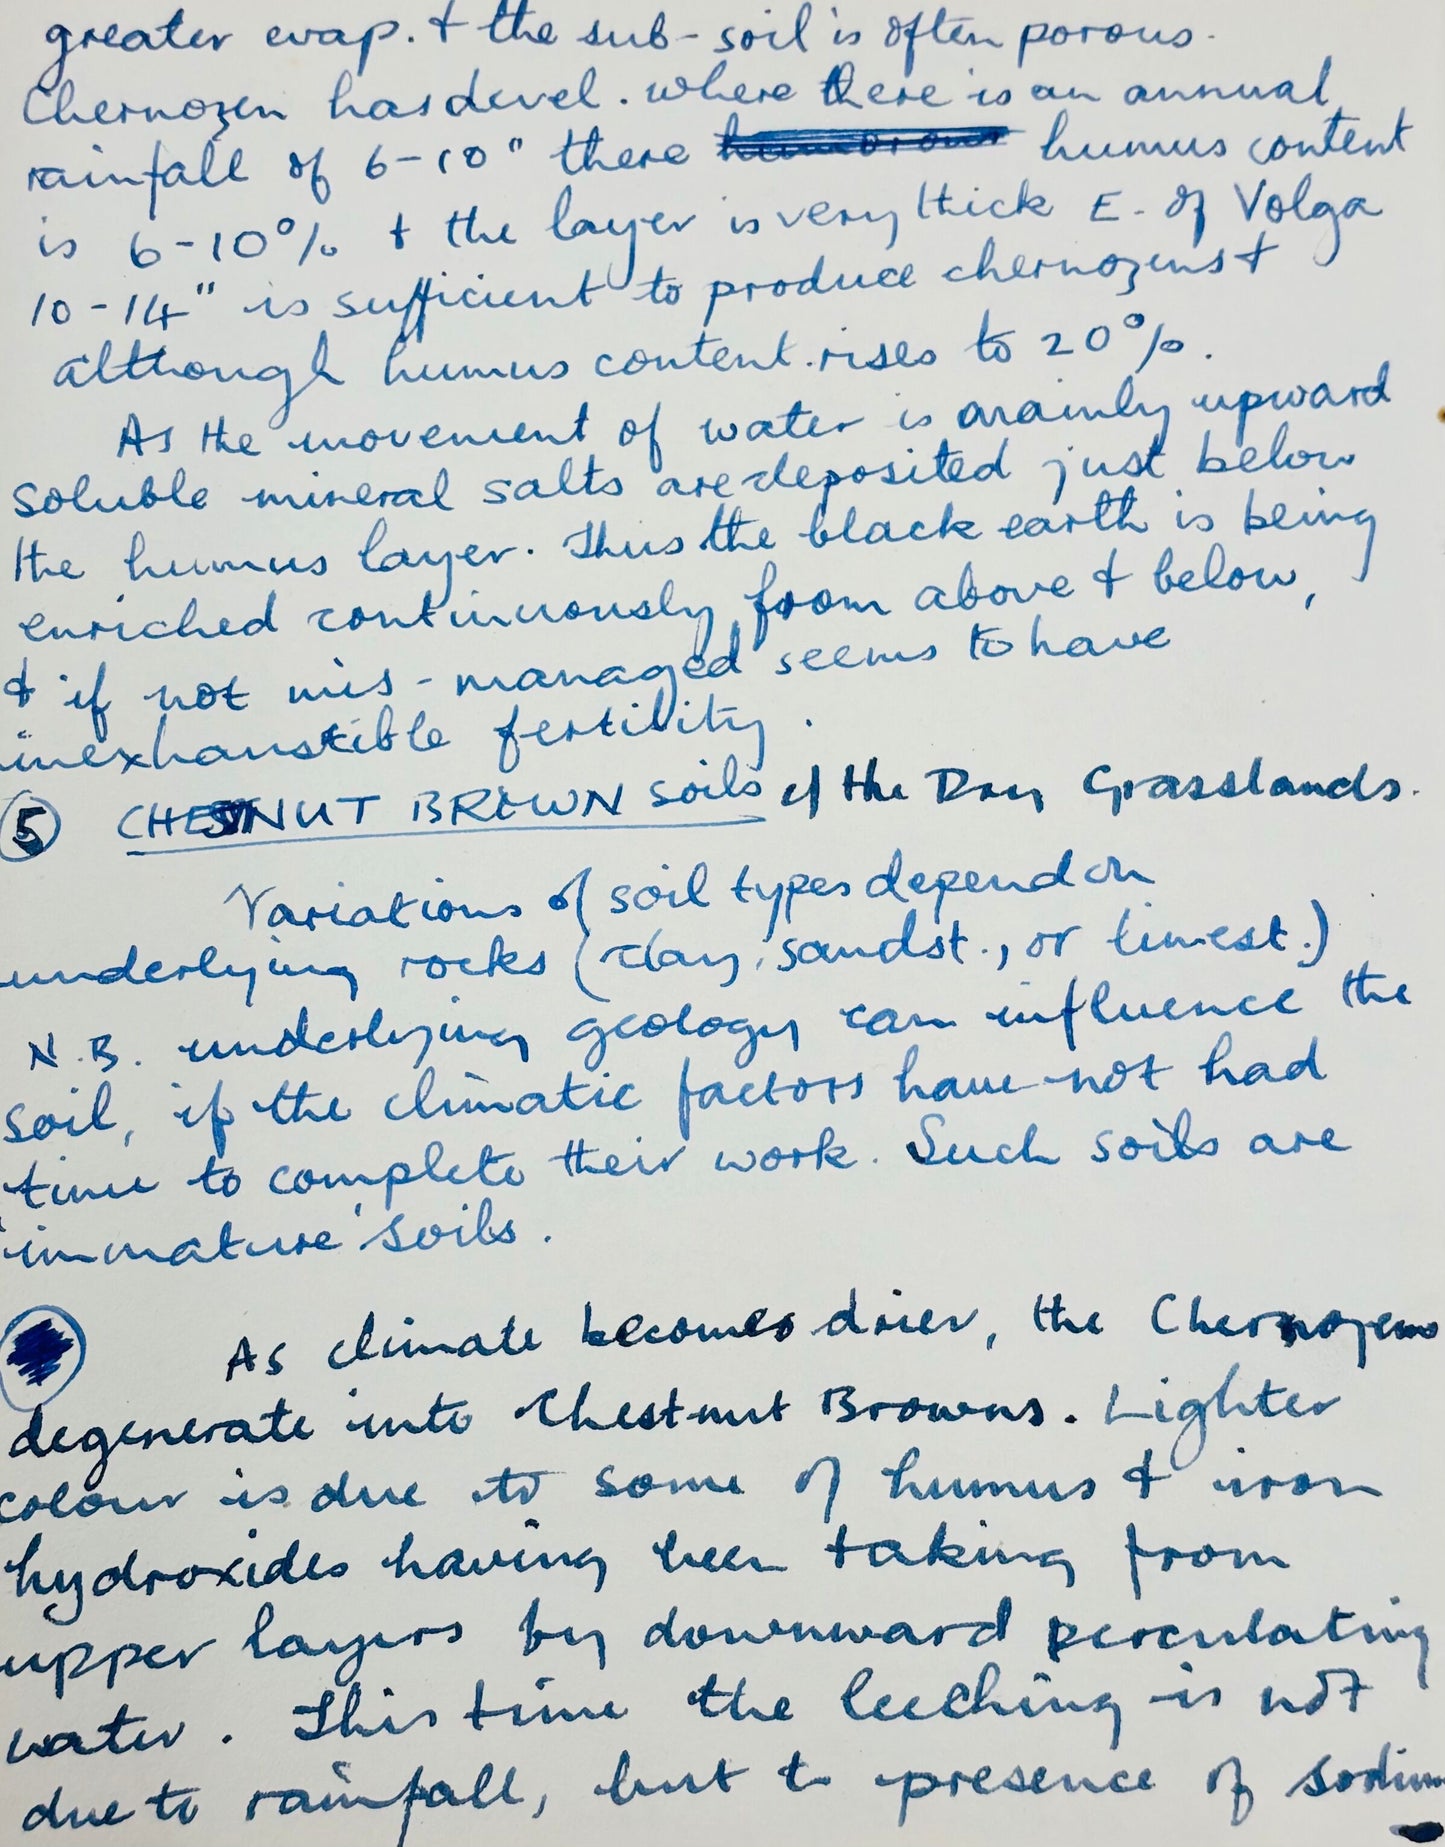 greater evap. + the sub-soil is often porous.
Chernozen has devel. where there is an annual
rainfall of 6-10" there humus content
is 6-10% + the layer is very thick E. of Volga
10-14" is sufficient to produce chernozens +
although humus content rises to 20%.
As the movement of water is mainly upward
soluble mineral salts are deposited just below
the humus layer. Thus the black earth is being
enriched continuously from above + below,
+ if not mis-managed seems to have
inexhaustible fertility.
5 CHESTNUT BROWN soils of the Dry Grasslands.
Variations of soil types depend on
underlying rocks (clay, sandst., or limest.)
N.B. underlying geology can influence the
soil, if the climatic factors have not had
time to complete their work. Such soils are
'immature' soils.
As climate becomes drier, the Chernozems
degenerate into Chestnut Browns. Lighter
colour is due to some of humus + iron
hydroxides having been taking from
upper layers by downward perculating
water. This time the leeching is not
due to rainfall, but to presence of sodium